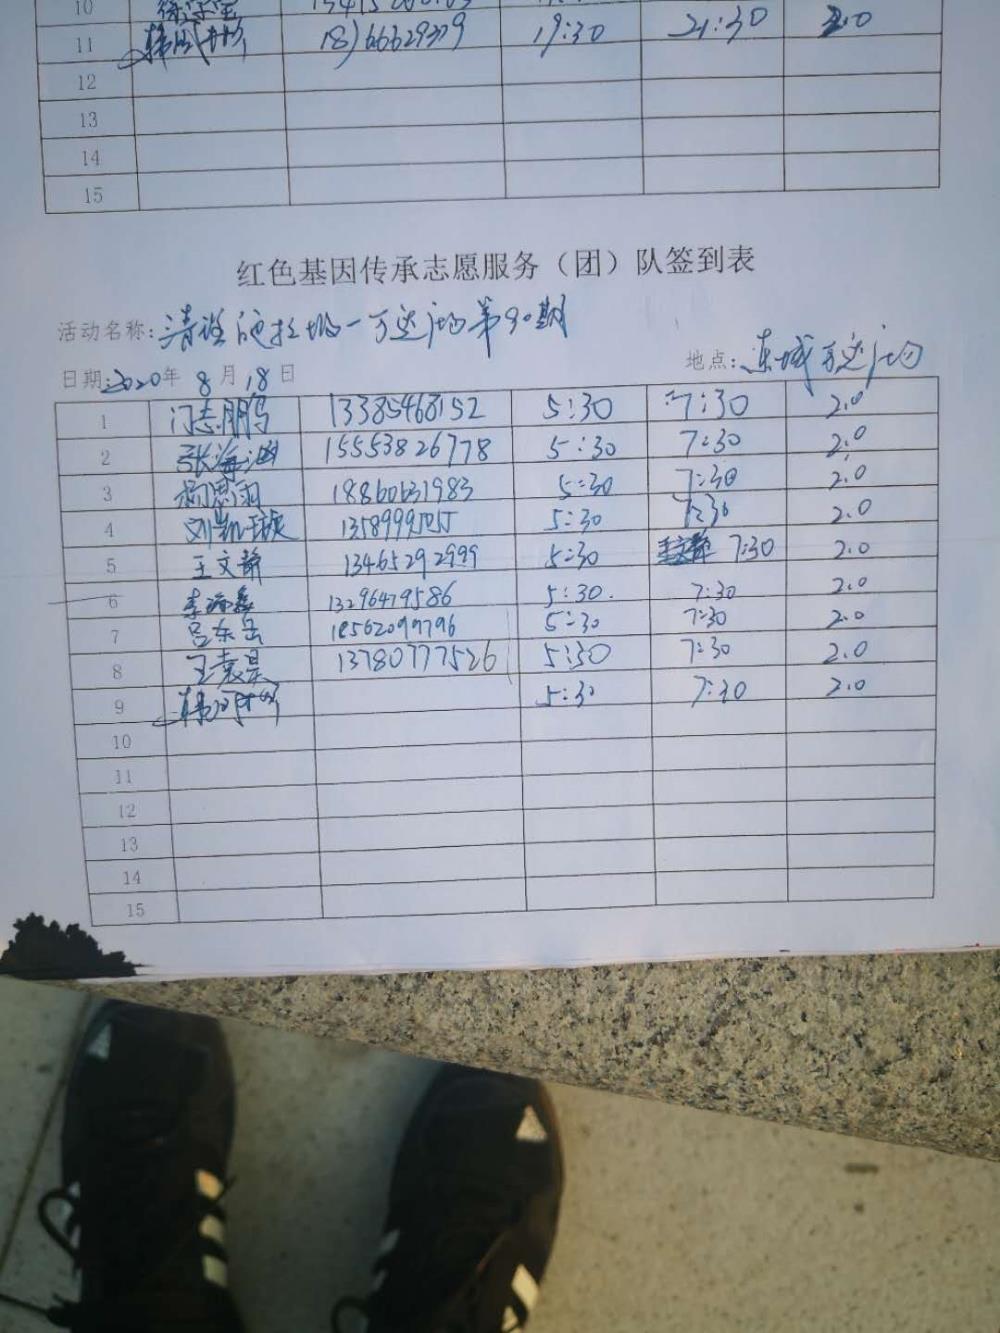 10
11 19:30 21:30 2.0
12
13
14
15
红色基因传承志愿服务（团）队签到表
活动名称: 清 第90期
日期: 2020年 8月18日 地点: 东城万达广场
1 门志鹏 13385468152 5:30 7:30 2.0
2 张海 15553826778 5:30 7:30 2.0
3 18860631983 5:30 7:30 2.0
4 刘凯璇 5:30 7:30 2.0
5 王文静 13465292999 5:30 7:30 2.0
6 李 13296479586 5:30. 7:30 2.0
7 吕东岳 18562099796 5:30 7:30 2.0
8 王袁昊 13780777526 5:30 7:30 2.0
9 5:30 7:30 2.0
10
11
12
13
14
15